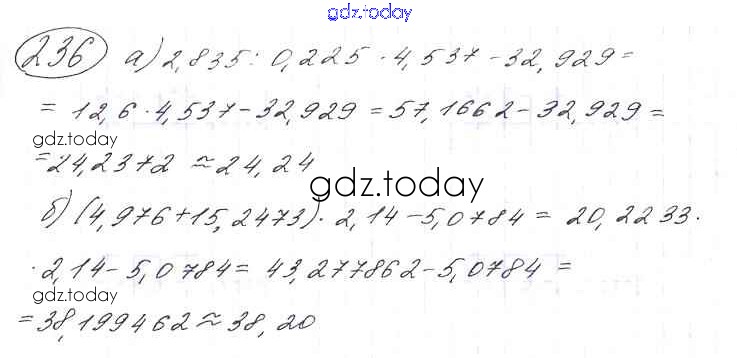 gdz.today
236 а) 2,835 : 0,225 · 4,537 - 32,929 =
= 12,6 · 4,537 - 32,929 = 57,1662 - 32,929 =
gdz.today
= 24,2372 ≈ 24,24
gdz.today
б) (4,976 + 15,2473) · 2,14 - 5,0784 = 20,2233 ·
· 2,14 - 5,0784 = 43,277862 - 5,0784 =
gdz.today
= 38,199462 ≈ 38,20